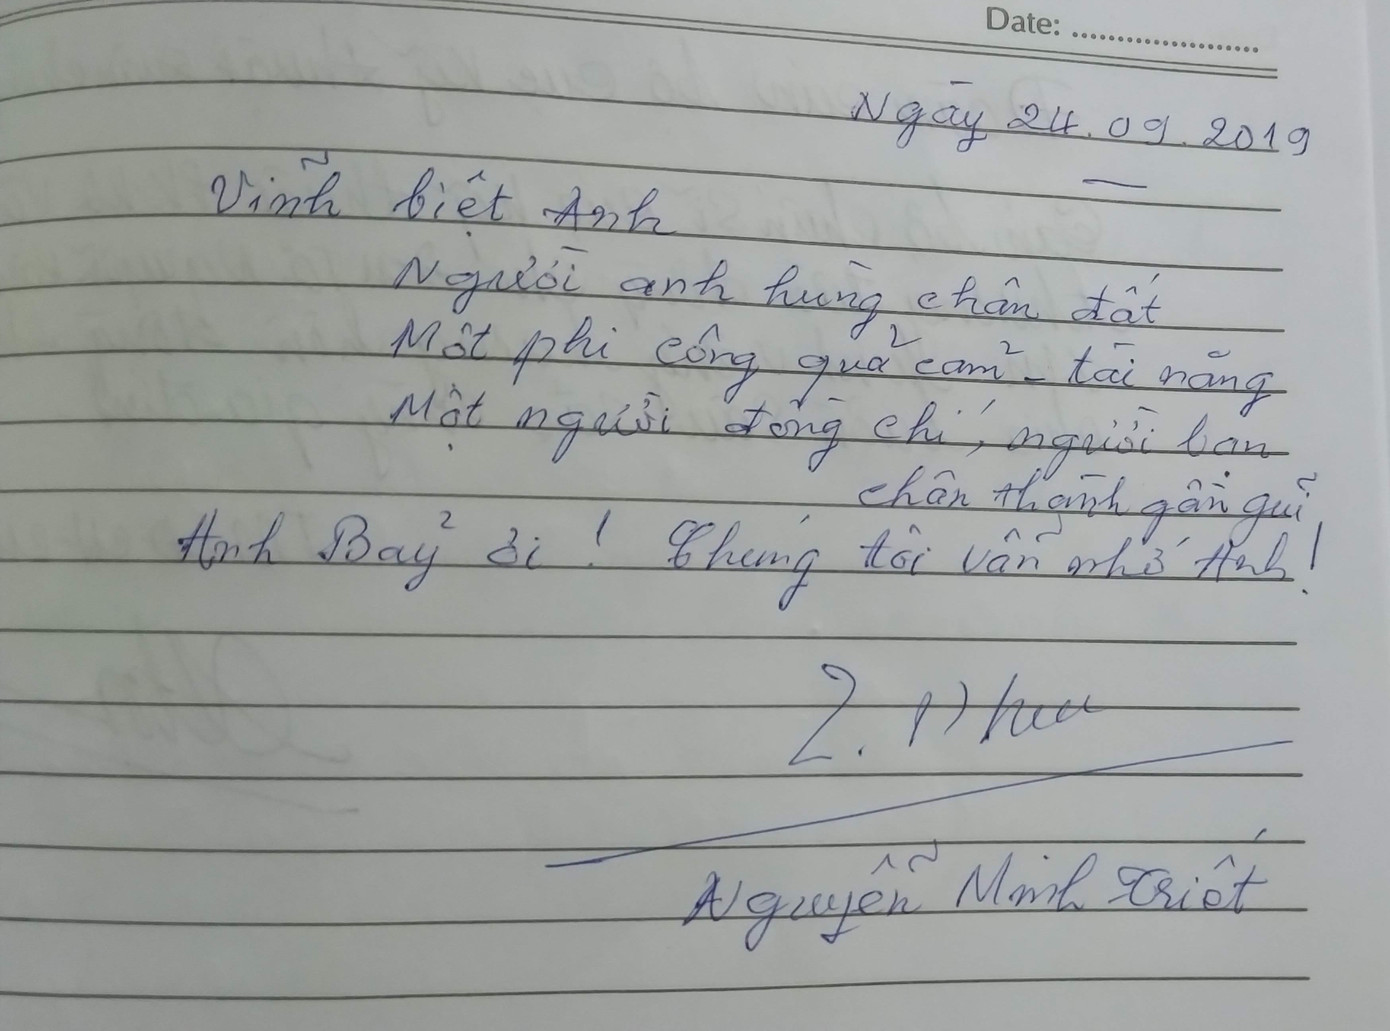 Date: ....................
Ngày 24.09.2019
Vĩnh biệt Anh
Người anh hùng chân đất
Một phi công quả cảm - tài năng
Một người đồng chí, người bạn
chân thành gần gũi
Anh Bảy ơi! Chúng tôi vẫn nhớ Anh!
Nguyễn Minh Triết